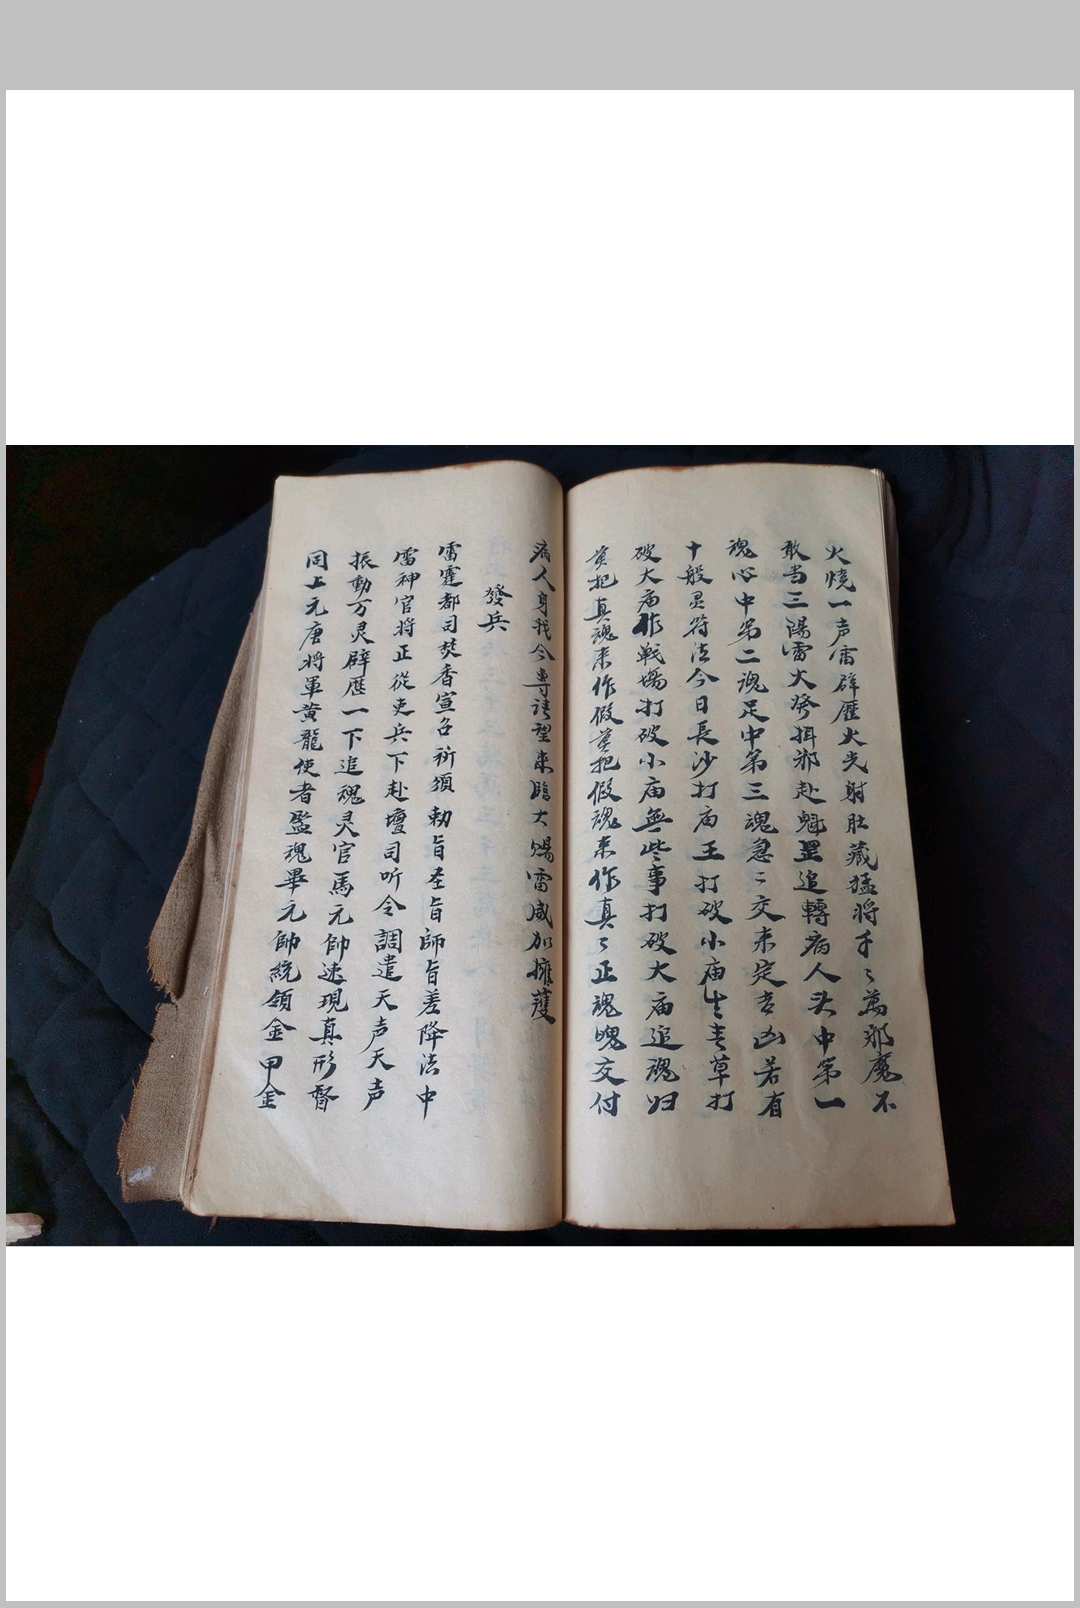 火燒一声雷辟歷火光射肚藏猛将手〻萬邪魔不
敢当三陽雷火發揖邪赴魁罡追轉病人头中第一
魂心中第二魂足中第三魂急〻交来定吉凶若有
十般灵符法今日長沙打庙王打破小庙生青草打
破大庙作戦場打破小庙無些事打破大庙追魂归
莫把真魂来作假莫把假魂来作真〻正魂魄交付
病人身我今專请望来臨大赐雷威加擁護
發兵
雷霆都司焚香宣召祈須勅旨奎旨師旨差降法中
雷神官将正從吏兵下赴壇司听令調遣天声天声
振動万灵辟歷一下追魂灵官馬元帥速現真形督
同上元唐将軍黄龍使者監魂畢元帥統領金甲金